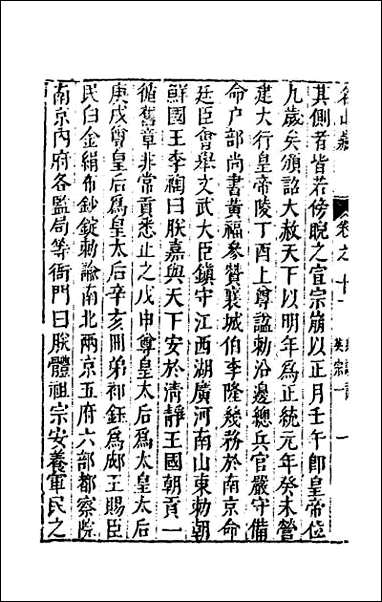 名山藏 卷之十一 英宗一 一
其側者皆若傍睨之宣宗崩以正月壬午即皇帝位
九歲矣頒詔大赦天下以明年爲正統元年癸未營
建大行皇帝陵丁酉上尊謚勑沿邊總兵官嚴守備
命户部尚書黃福叅贊襄城伯李隆幾務於南京命
廷臣會舉文武大臣鎮守江西湖廣河南山東勑朝
鮮國王李祹曰朕嘉與天下安於清靜王國朝貢一
循舊章非常貢悉止之戊申尊皇太后爲太皇太后
庚戌尊皇后爲皇太后辛亥冊弟祁鈺爲郕王賜臣
民白金絹布鈔錠勑諭南北兩京五府六部都察院
南京內府各監局等衙門曰朕體祖宗安養軍民之